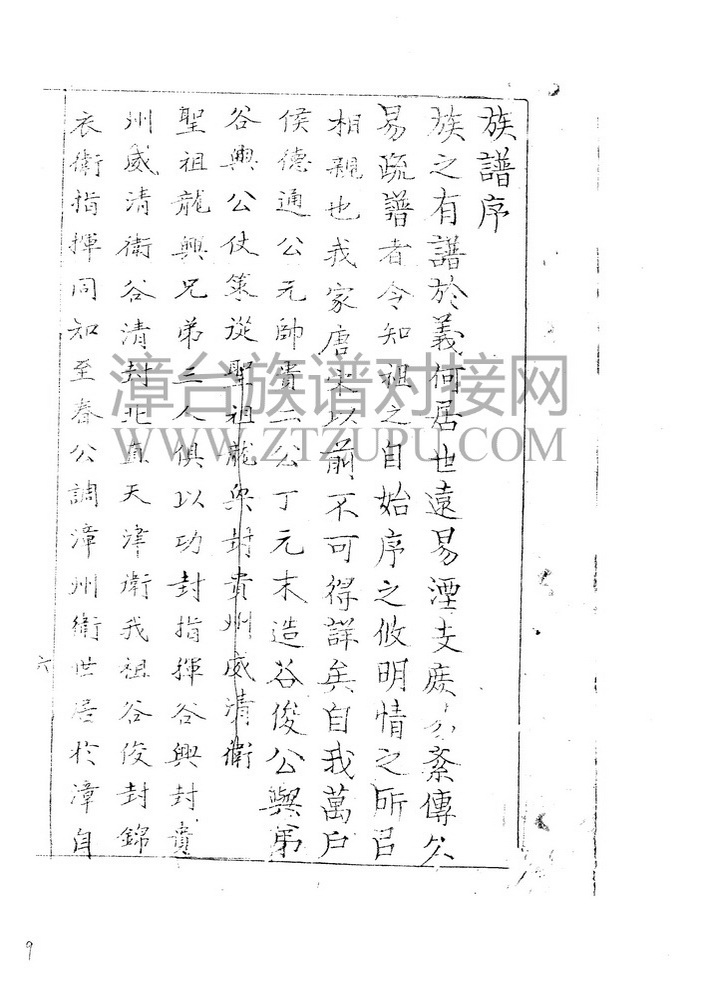 族譜序
族之有譜於義何居也遠易湮支庶易紊傳久
易疏譜者令知祖之自始序之攸明情之所㠯
相親也我家唐宋以前不可得詳矣自我萬戶
侯德通公元帥貴二公丁元末造谷俊公與弟
谷興公仗策從聖祖龍興封貴州威清衛
聖祖龍興兄弟三人俱以功封指揮谷興封貴
州威清衛谷清封北直天津衛我祖谷俊封錦
衣衛指揮同知至春公調漳州衛世居於漳自
六
9
漳台族谱对接网
WWW.ZTZUPU.COM